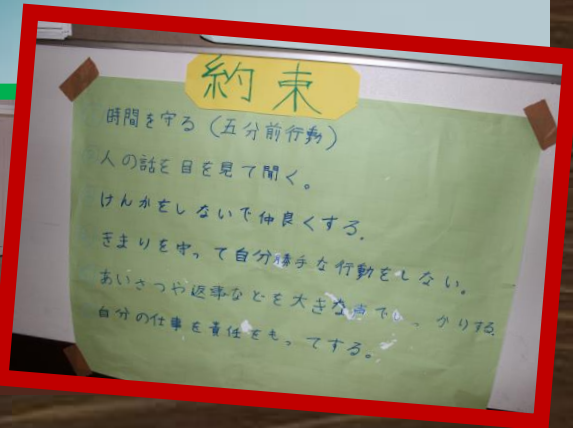 約束
時間を守る(五分前行動)
人の話を目を見て聞く。
けんかをしないで仲良くする。
きまりを守って自分勝手な行動をしない。
あいさつや返事などを大きな声でしっかりする。
自分の仕事を責任をもってする。